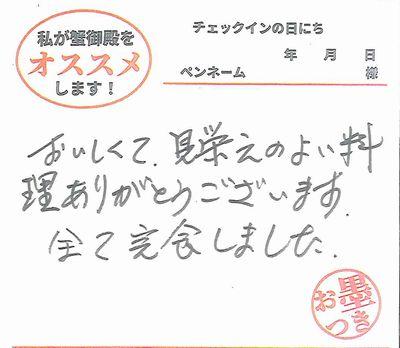 私が蟹御殿を
オススメ
します！
チェックインの日にち
年 月 日
ペンネーム 様
おいしくて、見栄えのよい料
理ありがとうございます。
全て完食しました。
お墨つき